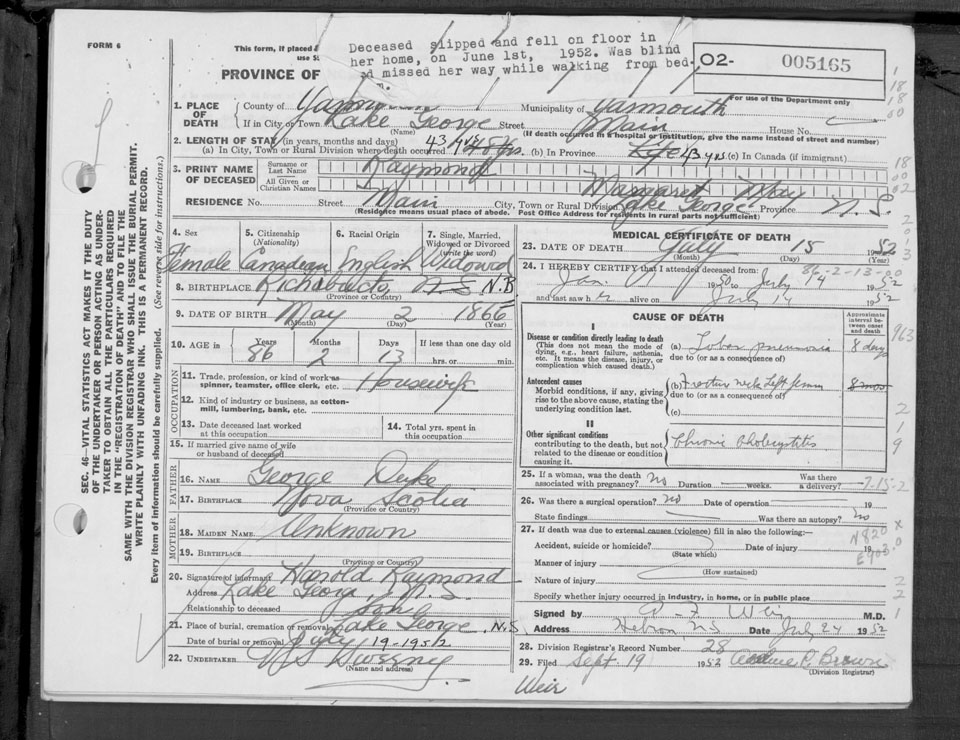 FORM 6
This form, if placed
use St
PROVINCE OF
Deceased slipped and fell on floor in
her home, on June 1st, 1952. Was blind
d missed her way while walking from bed-
m.
O2- 005165
For use of the Department only
SEC. 46—VITAL STATISTICS ACT MAKES IT THE DUTY
OF THE UNDERTAKER OR PERSON ACTING AS UNDER-
TAKER TO OBTAIN ALL THE PARTICULARS REQUIRED
IN THE "REGISTRATION OF DEATH" AND TO FILE THE
SAME WITH THE DIVISION REGISTRAR WHO SHALL ISSUE THE BURIAL PERMIT.
WRITE PLAINLY WITH UNFADING INK. THIS IS A PERMANENT RECORD.
Every item of information should be carefully supplied. (See reverse side for instructions.)
1. PLACE OF DEATH
County of Yarmouth Municipality of Yarmouth
If in City or Town Lake George Street Main House No.
(Name) (If death occurred in a hospital or institution, give the name instead of street and number)
2. LENGTH OF STAY (in years, months and days)
(a) In City, Town or Rural Division where death occurred 43 yrs (b) In Province Life 43 yrs. (c) In Canada (if immigrant)
3. PRINT NAME OF DECEASED
Surname or Last Name Raymond
All Given or Christian Names Margaret May
RESIDENCE No. Street Main City, Town or Rural Division Lake George Province N. S.
(Residence means usual place of abode. Post Office Address for residents in rural parts not sufficient)
4. Sex 5. Citizenship (Nationality) 6. Racial Origin 7. Single, Married, Widowed or Divorced (write the word)
Female Canadian English Widowed
8. BIRTHPLACE Richibucto N.B
(Province or Country)
9. DATE OF BIRTH May 2 1866
(Month) (Day) (Year)
10. AGE in Years Months Days If less than one day old
86 2 13 hrs. or min.
OCCUPATION
11. Trade, profession, or kind of work as spinner, teamster, office clerk, etc. Housewife
12. Kind of industry or business, as cotton-mill, lumbering, bank, etc.
13. Date deceased last worked at this occupation
14. Total yrs. spent in this occupation
15. If married give name of wife or husband of deceased
FATHER
16. NAME George Duke
17. BIRTHPLACE Nova Scotia
(Province or Country)
MOTHER
18. MAIDEN NAME Unknown
19. BIRTHPLACE
(Province or Country)
20. Signature of informant Harold Raymond
Address Lake George, N. S.
Relationship to deceased son
21. Place of burial, cremation or removal Lake George, N.S.
Date of burial or removal July 19-1952
22. UNDERTAKER Sweeny
(Name and address)
MEDICAL CERTIFICATE OF DEATH
23. DATE OF DEATH July 15 1952
(Month) (Day)
86-2-13-00
24. I HEREBY CERTIFY that I attended deceased from:
Jan. 1950 to July 14 1952
and last saw her alive on July 14 1952
CAUSE OF DEATH
Approximate interval between onset and death
I
Disease or condition directly leading to death
(This does not mean the mode of dying, e.g., heart failure, asthenia, etc. It means the disease, injury, or complication which caused death.)
(a) Lobar pneumonia 8 days
due to (or as a consequence of)
Antecedent causes
Morbid conditions, if any, giving rise to the above cause, stating the underlying condition last.
(b) Fracture neck left femur
due to (or as a consequence of)
(c)
II
Other significant conditions
contributing to the death, but not related to the disease or condition causing it.
Chronic Cholecystitis
25. If a woman, was the death associated with pregnancy? No Duration weeks. Was there a delivery?
7-15-2
26. Was there a surgical operation? No Date of operation 19
State findings Was there an autopsy? No
27. If death was due to external causes (violence) fill in also the following:
Accident, suicide or homicide? Date of injury 19
(State which)
N820
E903.0
Manner of injury
(How sustained)
Nature of injury
Specify whether injury occurred in industry, in home, or in public place
Signed by Weir M.D.
Address Hebron, NS Date July 24 1952
28. Division Registrar's Record Number 28
29. Filed Sept. 19 1952 P. Brown
(Division Registrar)
Weir